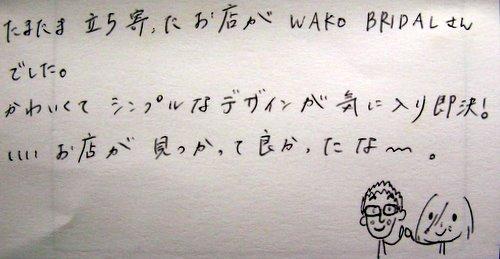 たまたま 立ち寄った お店が WAKO BRIDALさん
でした。
かわいくて シンプルなデザインが 気に入り即決!
いいお店が 見つかって良かったな〜。